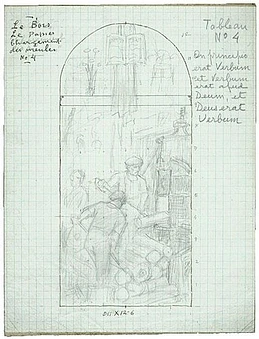 Le Bois
Le Papier
Chargement
des meules
No 4
Tableau
No 4
"On principio
erat Verbum
et Verbum
erat apud
Deum, et
Deus erat
Verbum